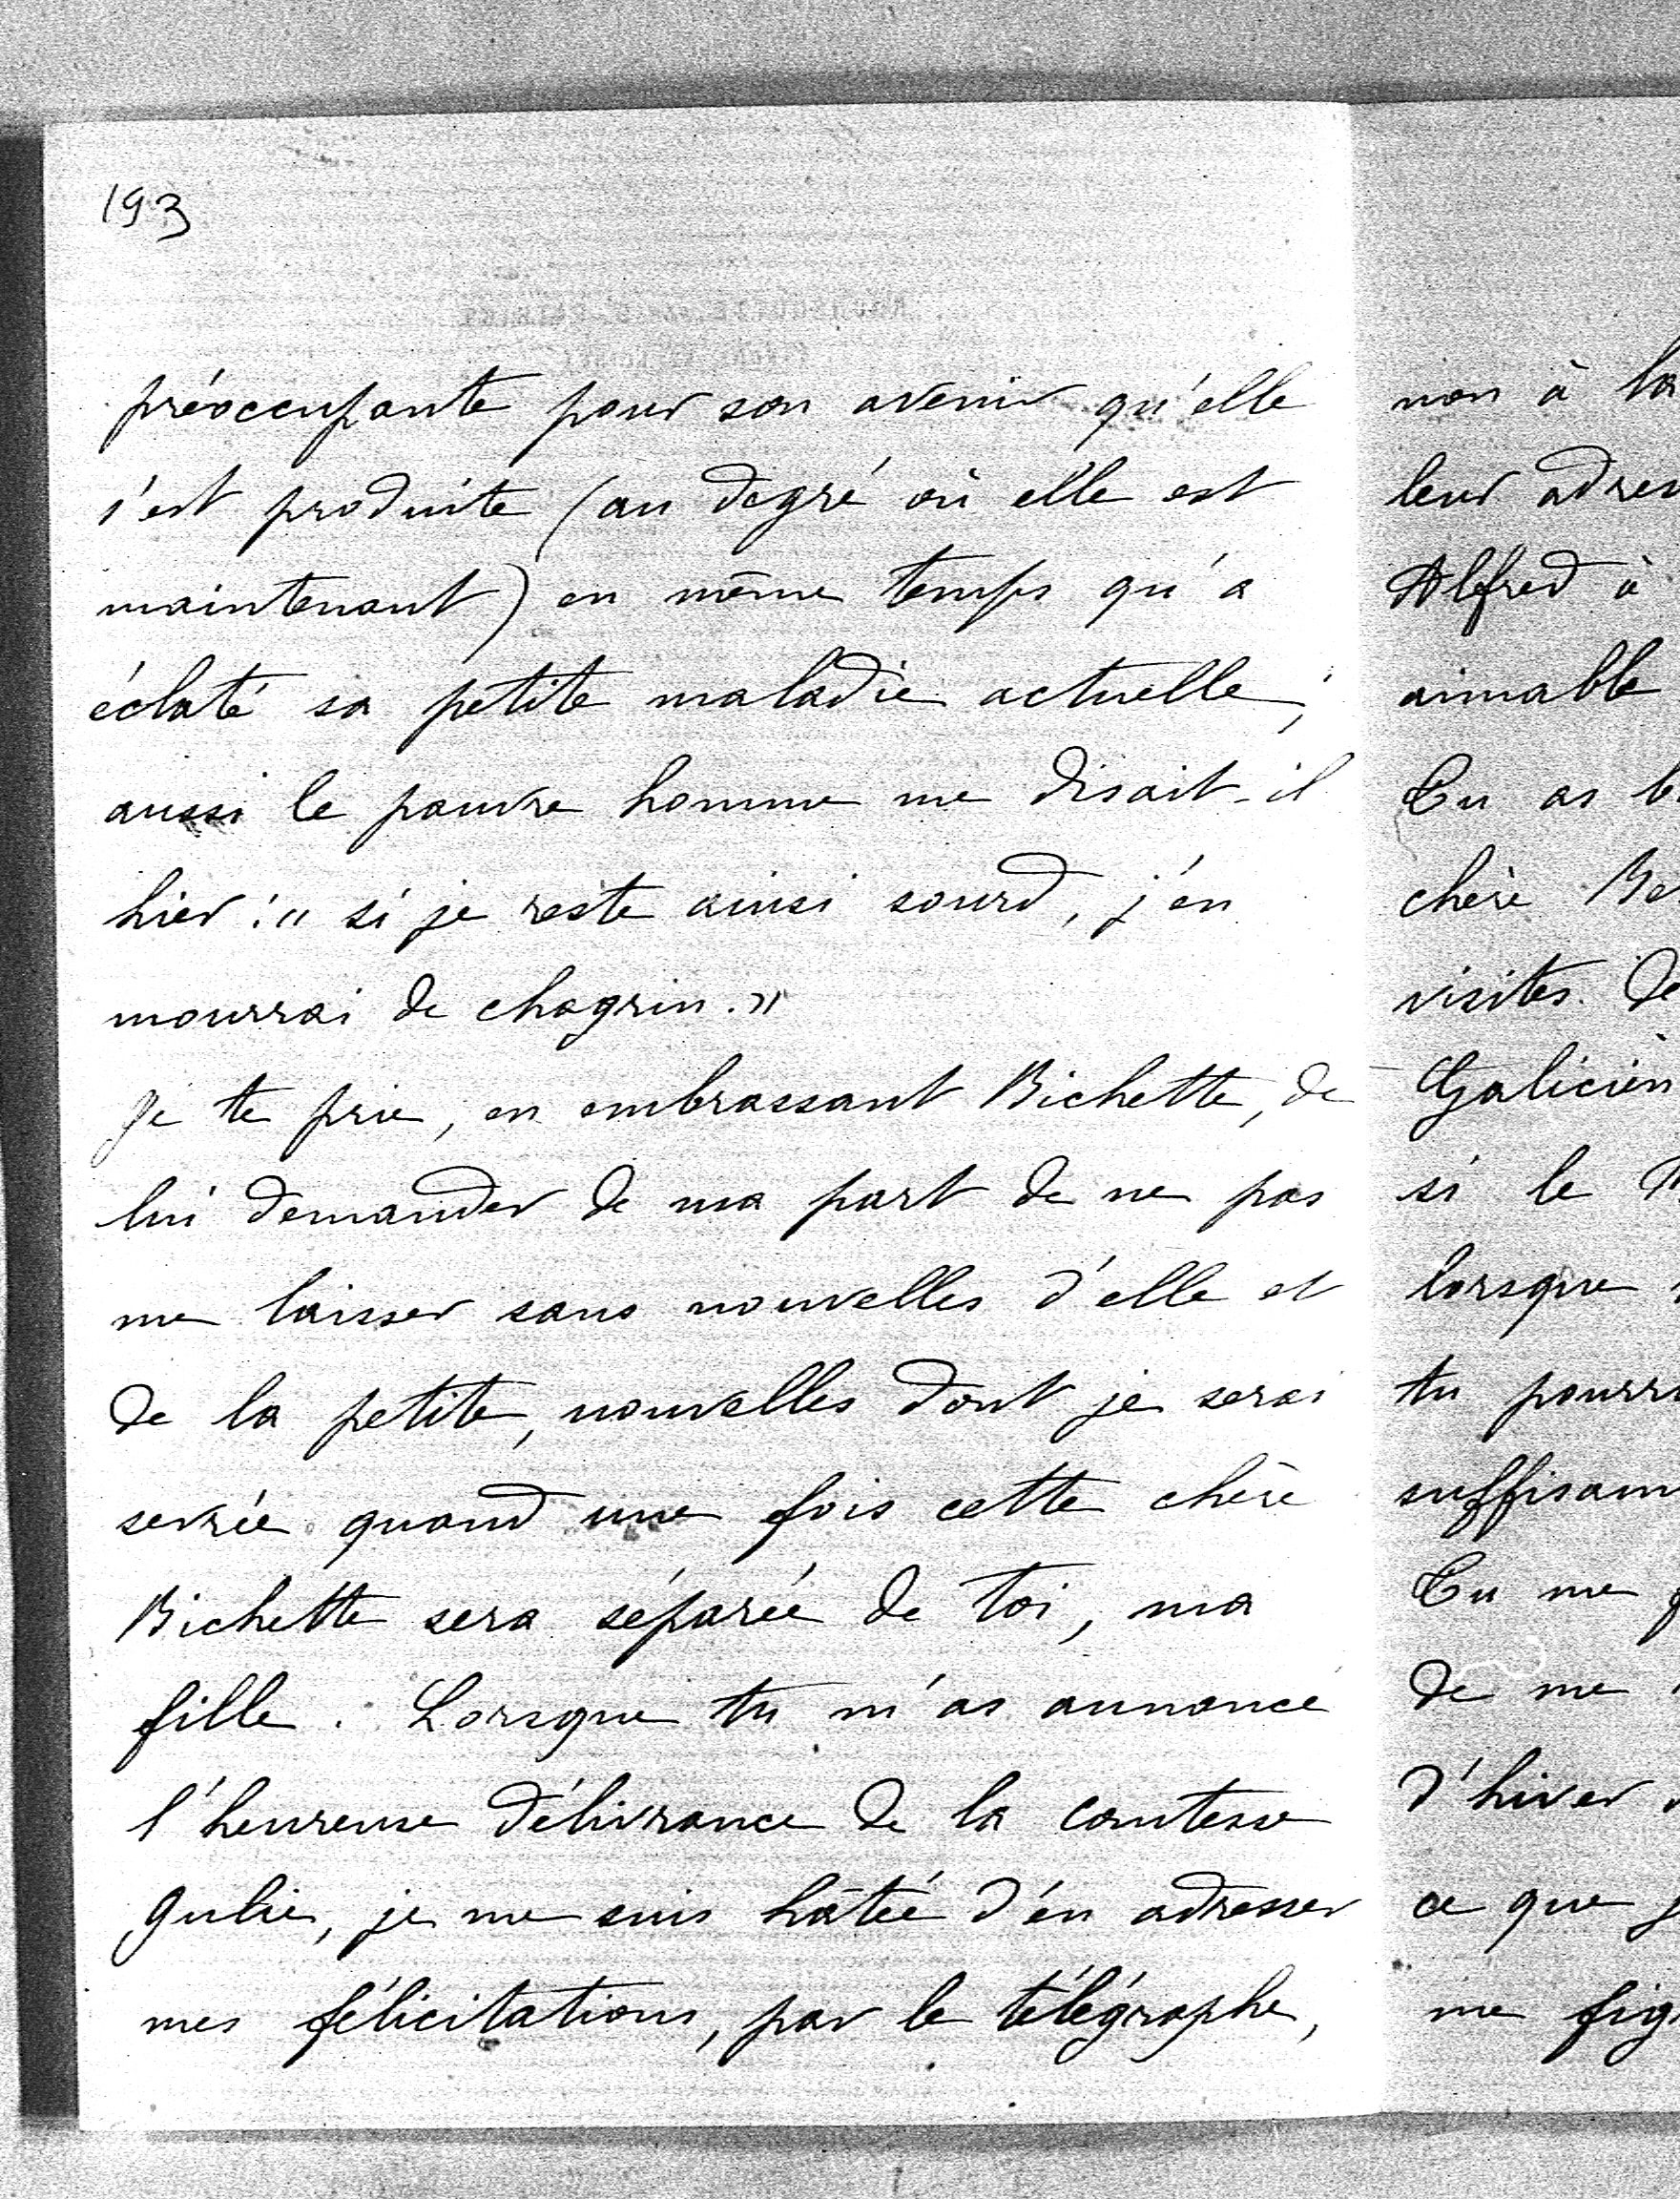 193
préoccupante pour son avenir qu'elle
s'est produite (au degré où elle est
maintenant) en même temps qu'a
éclaté sa petite maladie actuelle;
aussi le pauvre homme me disait-il
hier: " si je reste ainsi sourd, j'en
mourrai de chagrin."
Je te prie, en embrassant Bichette, de
lui demander de ma part de ne pas
me laisser sans nouvelles d'elle et
de la petite, nouvelles dont je serai
sevrée quand une fois cette chère
Bichette sera séparée de toi, ma
fille. Lorsque tu m'as annoncé
l'heureuse délivrance de la comtesse
Julie, je me suis hâtée d'en adresser
mes félicitations, par le télégraphe,
non à la
leur
Alfred à
aimable
Tu as
chère
visites.
si le
lorsque
tu
Tu me
de me
d'hiver
ce que
me